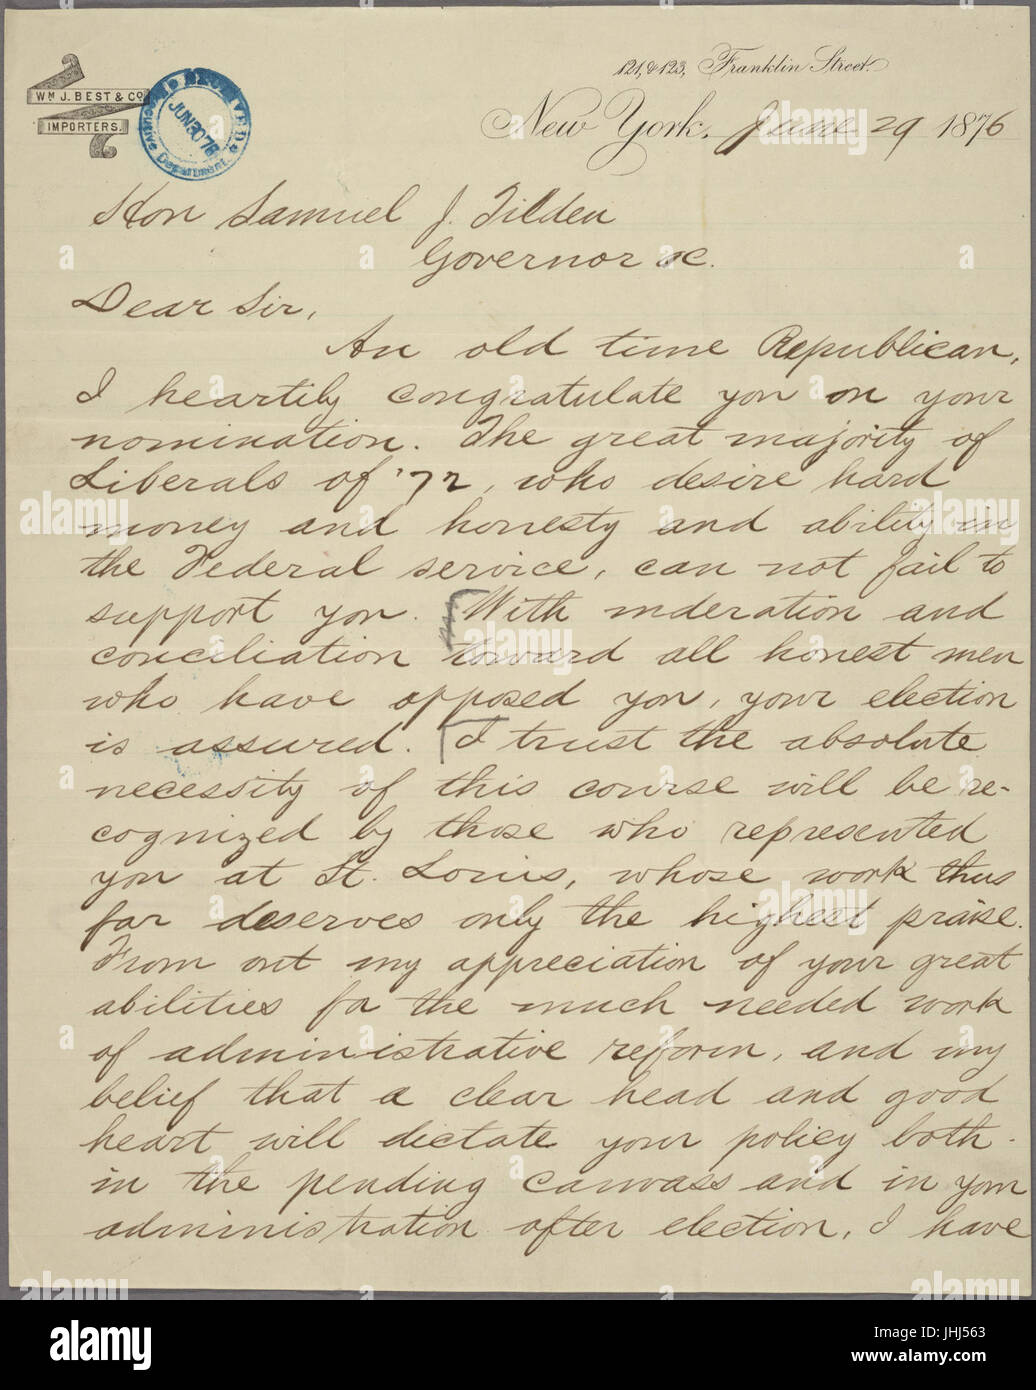 121, & 123, Franklin Street.
WM J. BEST & CO
IMPORTERS.
RECEIVED
JUN 30 76
Executive Department.
New York, June 29 1876
Hon Samuel J. Tilden
Governor &c.
Dear Sir,
An old time Republican,
I heartily congratulate you on your
nomination. The great majority of
Liberals of '72, who desire hard
money and honesty and ability in
the Federal service, can not fail to
support you. With moderation and
conciliation toward all honest men
who have opposed you, your election
is assured. I trust the absolute
necessity of this course will be re-
cognized by those who represented
you at St. Louis, whose work thus
far deserves only the highest praise.
From out my appreciation of your great
abilities for the much needed work
of administrative reform, and my
belief that a clear head and good
heart will dictate your policy both
in the pending canvass and in your
administration after election, I have
alamy
alamy stock photo
JHJ563
www.alamy.com